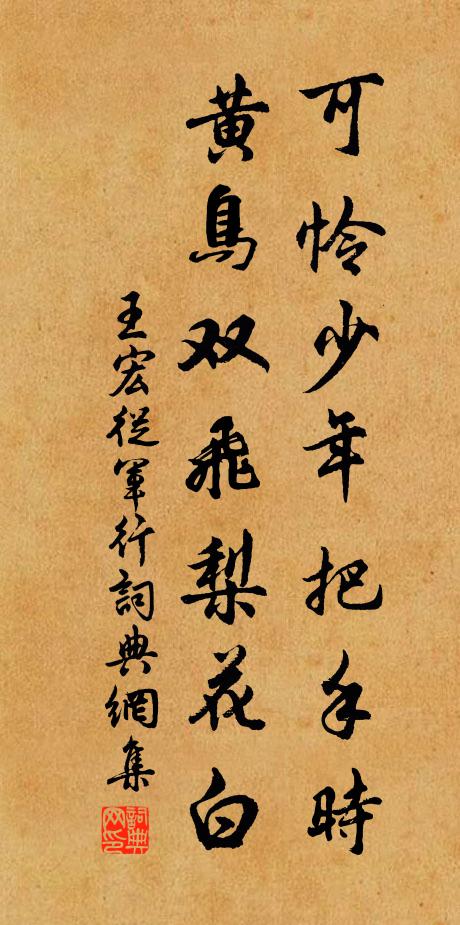 可怜少年把手時
黄鳥双飛梨花白
王宏從軍行詞典網集
詞典网印